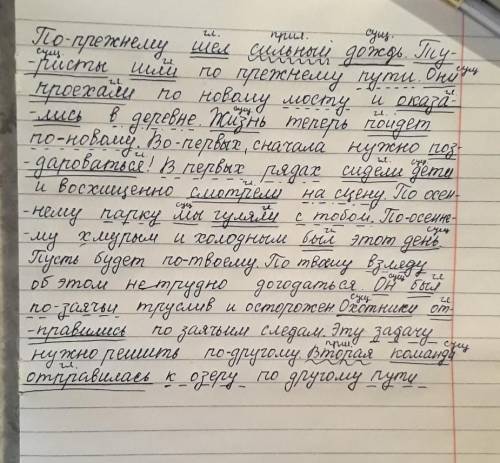 гл. прил. сущ.
По-прежнему шел сильный дождь. Ту-
сущ. гл. сущ.
ристы шли по прежнему пути. Они
гл. гл.
проехали по новому мосту и оказа-
сущ. гл.
лись в деревне. Жизнь теперь пойдет
по-новому. Во-первых, сначала нужно поз-
гл. гл. сущ.
дароваться! В первых рядах сидели дети
гл.
и восхищенно смотрели на сцену. По осен-
сущ. гл.
-нему парку мы гуляли с тобой. По-осенне-
гл. сущ.
-му хмурым и холодным был этот день.
Пусть будет по-твоему. По твоему взгляду
сущ. гл.
об этом не трудно догодаться. Он был
сущ. гл.
по-заячьи труслив и осторожен. Охотники от-
-правились по заячьим следам. Эту задачу
прил. сущ.
нужно решить по-другому. Вторая команда
гл.
отправилась к озеру по другому пути